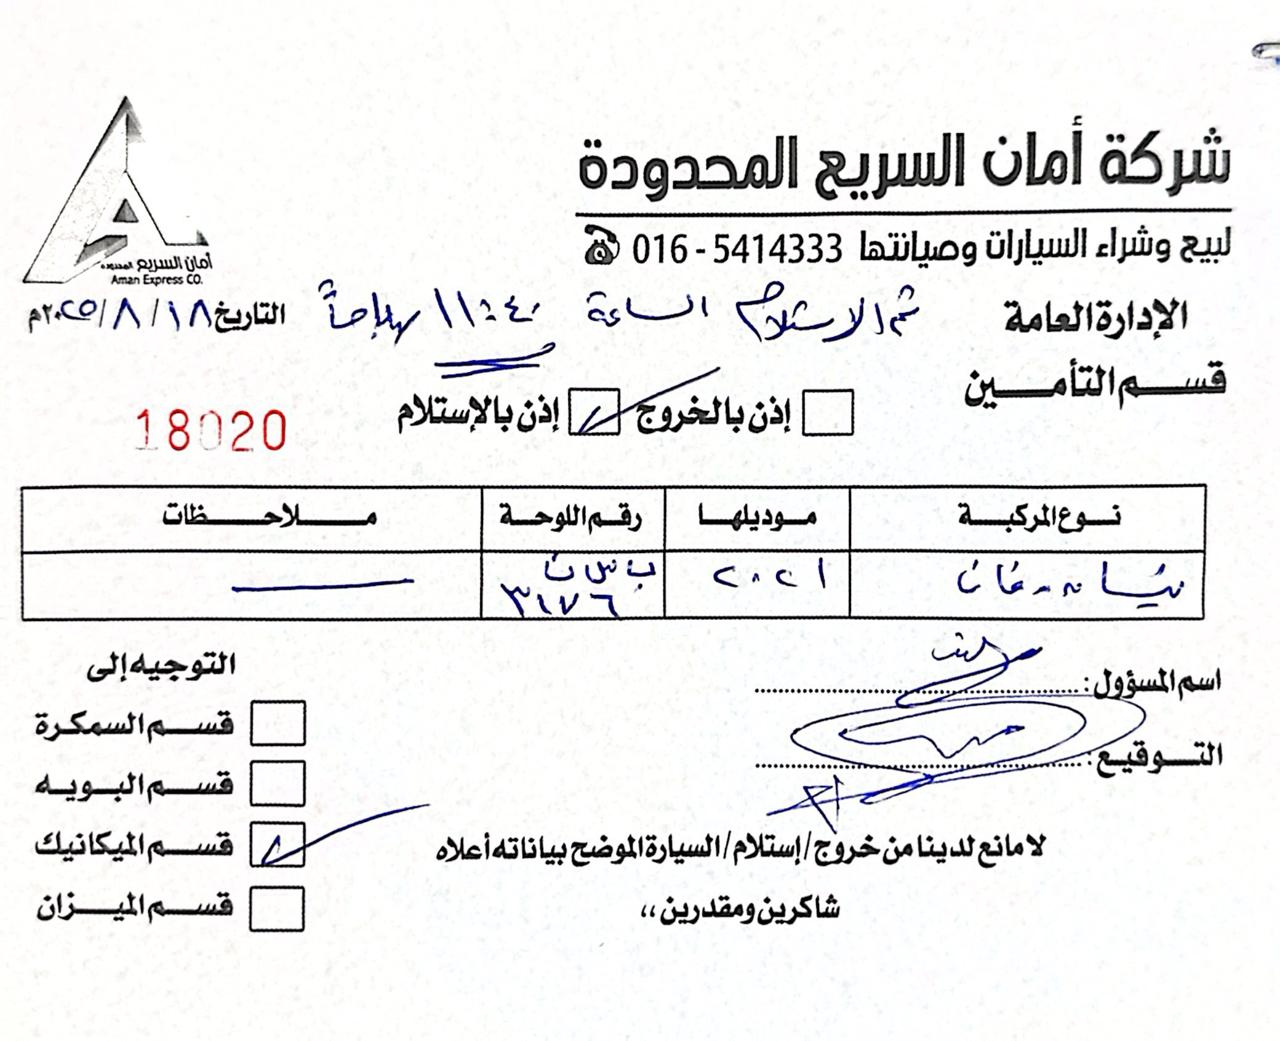 شركة أمان السريع المحدودة
لبيع وشراء السيارات وصيانتها 016 - 5414333
أمان السريع المحدودة
Aman Express CO.
الإدارة العامة
تم الاستلام الساعة ١١:٤٠ صباحاً
التاريخ ١٨ / ٨ / ٢٠٢٥م
قسم التأمين
إذن بالخروج
إذن بالإستلام
18020
نوع المركبة موديلها رقم اللوحة ملاحظات
نيسان ٢٠٢١ ٣١٧٦
اسم المسؤول:
التوقيع:
لا مانع لدينا من خروج/إستلام/السيارة الموضح بياناته أعلاه
شاكرين ومقدرين ،،
التوجيه إلى
قسم السمكرة
قسم البويه
قسم الميكانيك
قسم الميزان